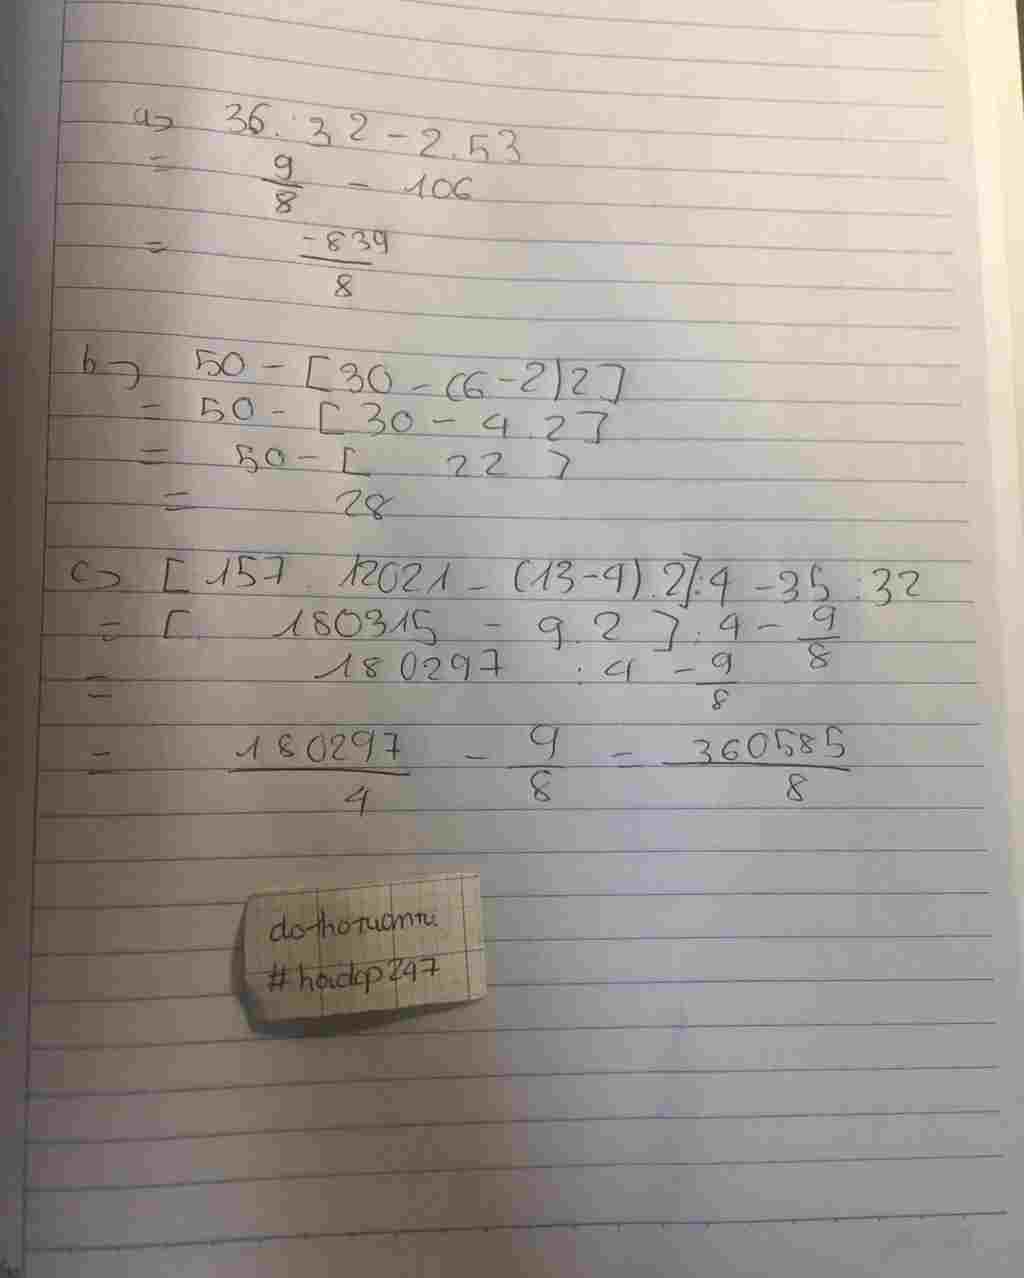 a) 36 : 32 - 2.53
= 9/8 - 106
= -839/8
b) 50 - [30 - (6 - 2)2]
= 50 - [30 - 4.2]
= 50 - [ 22 ]
= 28
c) [157 . 12021 - (13-4).2]:4 - 35 : 32
= [ 180315 - 9.2 ] : 4 - 9/8
= 180297 : 4 - 9/8
= 180297/4 - 9/8 = 360585/8
#hoidap247